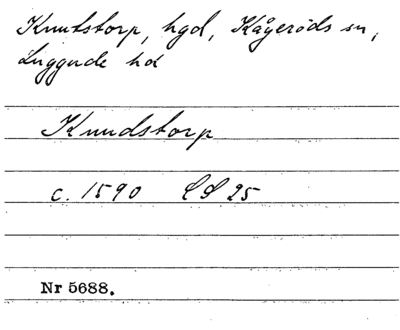 Knutstorp, hgd, Kågeröds sn,
Luggude hd
Knudstorp
c. 1590 LS 25
Nr 5688.